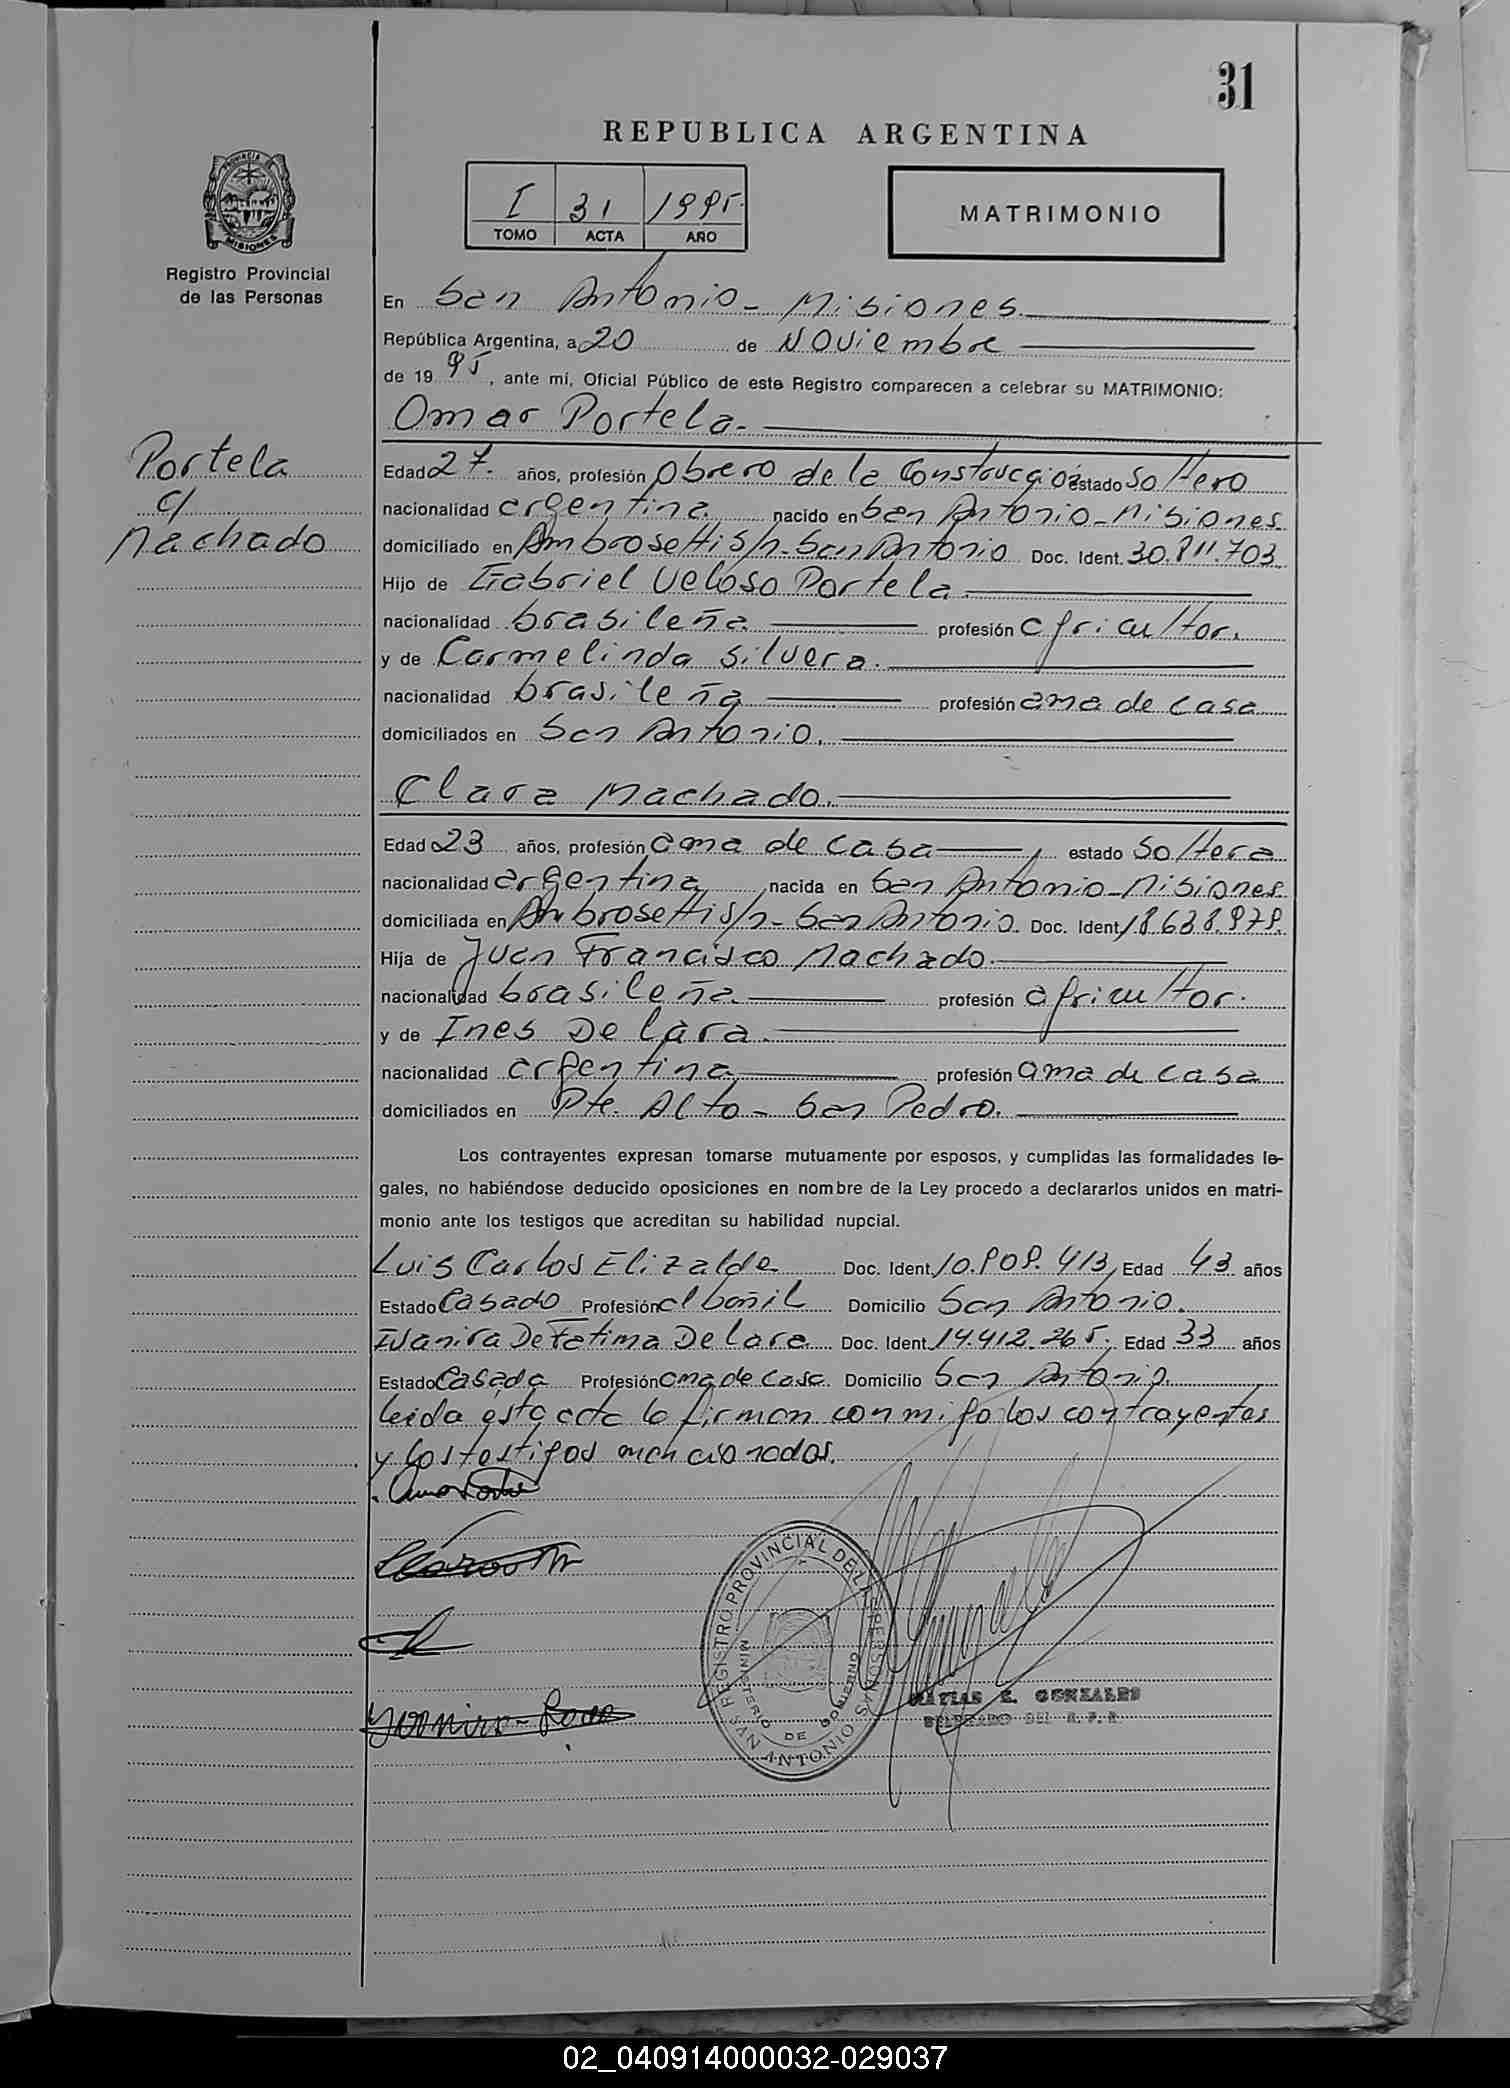 31
REPUBLICA ARGENTINA
PROVINCIA DE MISIONES
Registro Provincial
de las Personas
I 31 1995.
TOMO ACTA AÑO
MATRIMONIO
En San Antonio - Misiones.
República Argentina, a 20 de Noviembre
de 19 95, ante mí, Oficial Público de este Registro comparecen a celebrar su MATRIMONIO:
Omar Portela.
Portela
c/
Machado
Edad 27. años, profesión Obrero de la Construcción estado Soltero
nacionalidad argentina nacido en San Antonio - Misiones.
domiciliado en Ambrosetti s/n - San Antonio Doc. Ident. 30.811.703
Hijo de Gabriel Veloso Portela.
nacionalidad brasileña profesión agricultor.
y de Carmelinda Silvera.
nacionalidad brasileña profesión ama de casa
domiciliados en San Antonio.
Clara Machado.
Edad 23 años, profesión ama de casa estado Soltera
nacionalidad argentina nacida en San Antonio - Misiones.
domiciliada en Ambrosetti s/n - San Antonio. Doc. Ident. 18.638.979.
Hija de Juan Francisco Machado.
nacionalidad brasileña profesión agricultor.
y de Ines De Lara.
nacionalidad argentina profesión ama de casa
domiciliados en Pte. Alto - San Pedro.
Los contrayentes expresan tomarse mutuamente por esposos, y cumplidas las formalidades le-
gales, no habiéndose deducido oposiciones en nombre de la Ley procedo a declararlos unidos en matri-
monio ante los testigos que acreditan su habilidad nupcial.
Luis Carlos Elizalde Doc. Ident. 10.909.413, Edad 43 años
Estado Casado Profesión albañil Domicilio San Antonio.
Ivanira De Fatima De Lara Doc. Ident. 14.412.265. Edad 33 años
Estado Casada Profesión ama de casa. Domicilio San Antonio.
leida esta acta la firman conmigo los contrayentes
y los testigos mencionados.
REGISTRO PROVINCIAL DE LAS PERSONAS
MINISTERIO DE GOBIERNO
SAN ANTONIO
MATIAS E. GONZALES
DELEGADO DEL R. P. P.
02_040914000032-029037